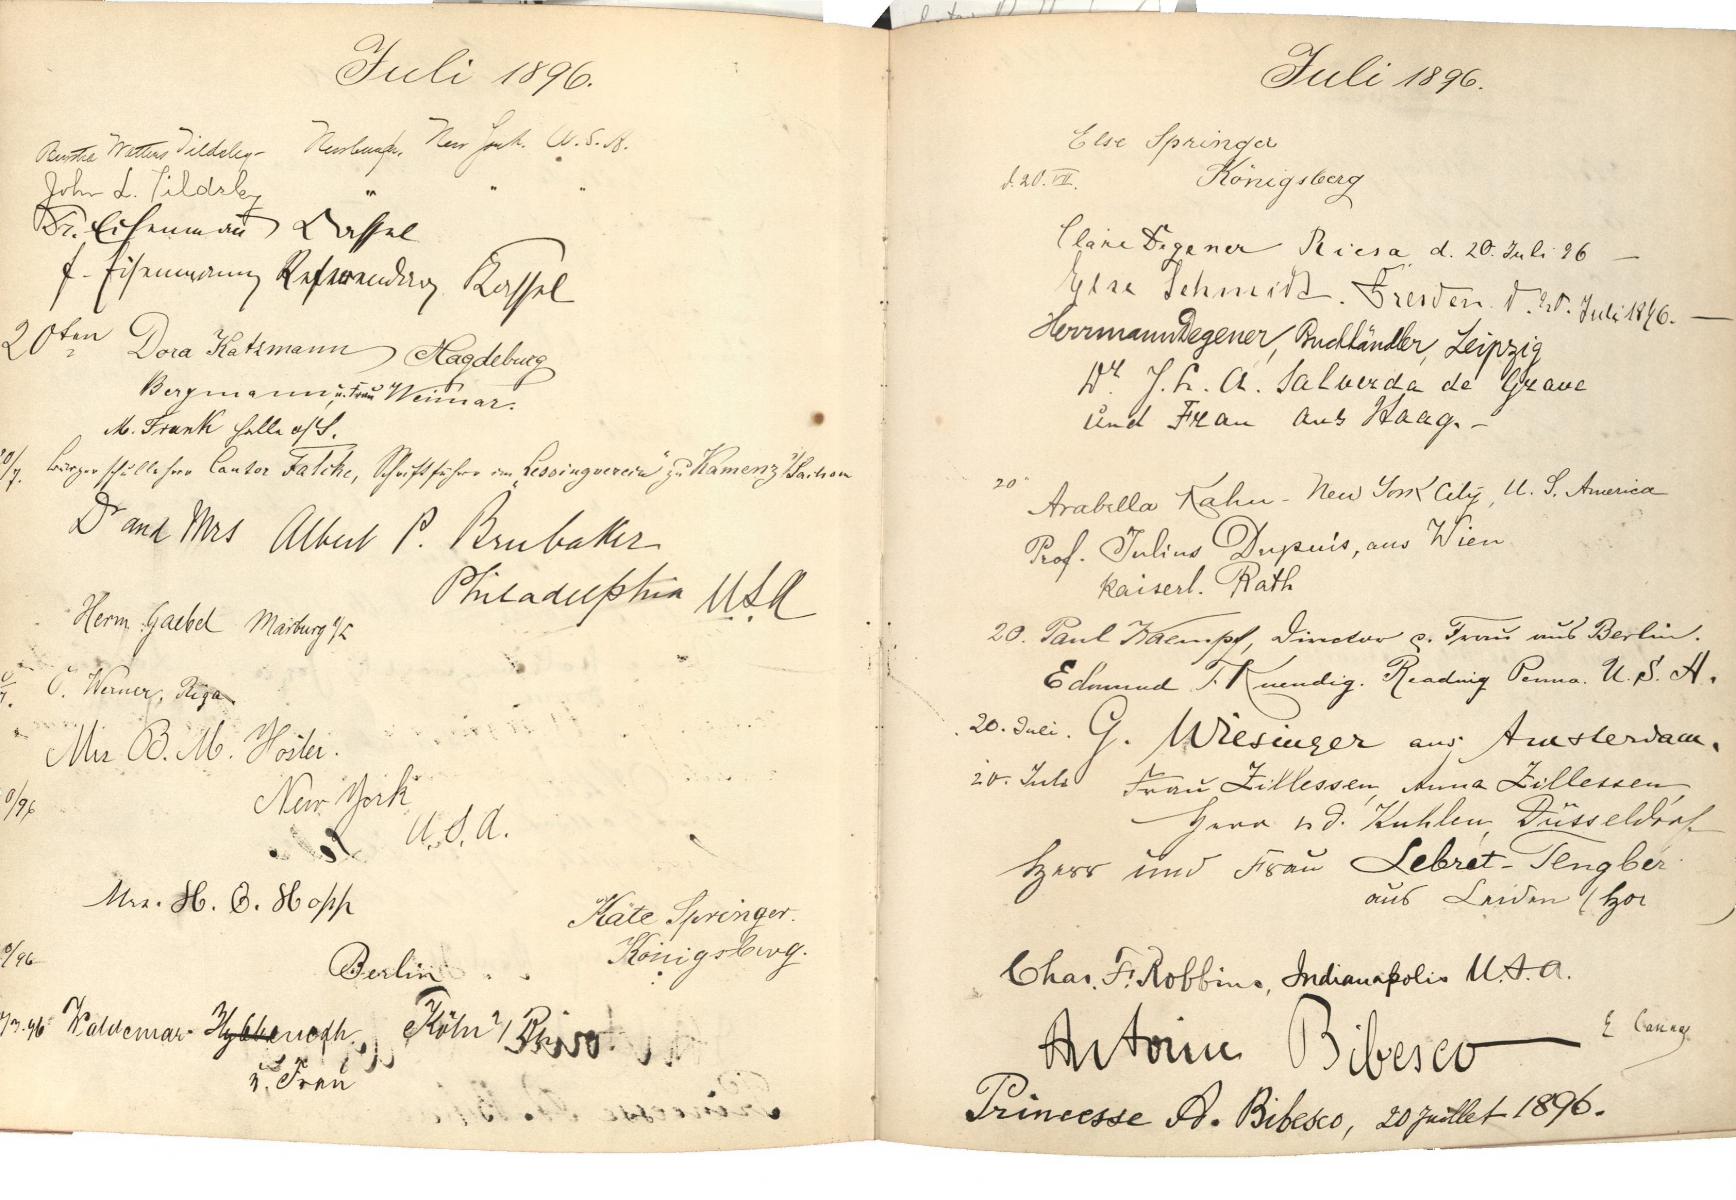 Juli 1896.
Bertha Watters Tildsley - Newburgh, New York. U.S.A.
John L. Tildsley " " "
Dr. Eisenmann Cassel
F. Eisenmann Referendar Kassel
20ten Dora Katzmann Magdeburg
Bergmann u. Frau Weimar.
M. Frank Halle a/S.
20/7. Bürgerschullehrer Cantor Fatche, Schriftführer im "Lessingverein" zu Kamenz i/Sachsen
Dr and Mrs Albert P. Brubaker
Philadelphia U.S.A
Herm. Gaebel Marburg a/L
O. Werner, Riga
Mrs B. M. Hosler.
New York
0/96
U.S.A.
Mrs. H. O. Hopp
Käte Springer.
Königsberg.
0/96
Berlin
Waldemar Köln a/Rh
u. Frau
Juli 1896.
Else Springer
d. 20. VII. Königsberg
Clare Degener Riesa d. 20. Juli 96 —
Else Schmidt. Dresden d. 20. Juli 1896. —
Herrmann Degener, Buchhändler, Leipzig
Dr J. L. A. Salverda de Grave
und Frau aus Haag. -
20 Arabella Kahn - New York City, U. S. America
Prof. Julius Dupuis, aus Wien
kaiserl. Rath
20. Paul Kaempf, Director c. Frau aus Berlin.
Edmund F. Kuendig. Reading Penna. U. S. A.
20. Juli. G. Wiesinger aus Amsterdam.
20. Juli Frau Zillessen, Anna Zillessen,
Herr v d. Kuhlen, Düsseldorf
Herr und Frau Lebret-Tengber
aus Leiden (Hol
Chas. F. Robbins, Indianapolis U.S.A.
Antoine Bibesco E
Princesse A. Bibesco, 20 Juillet 1896.